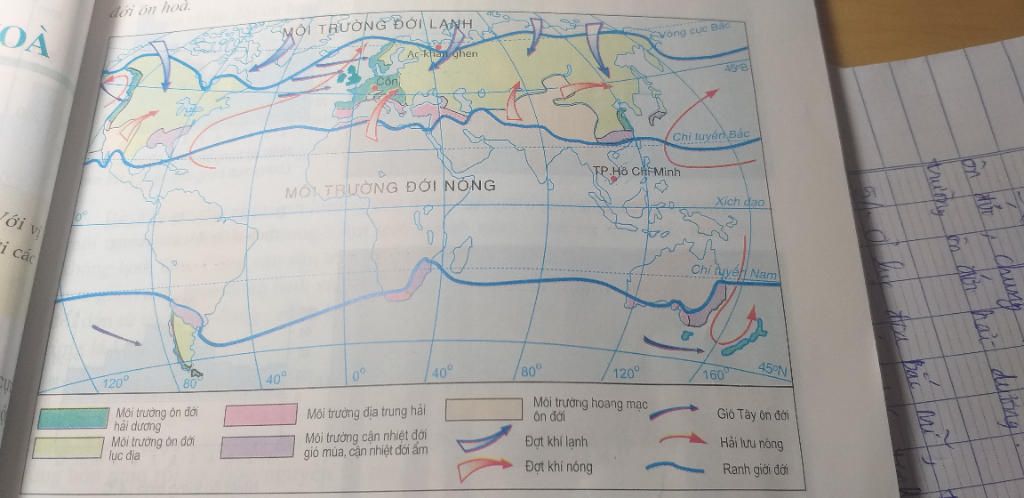 đới ôn hoà.
OÀ
MÔI TRƯỜNG ĐỚI LẠNH
Vòng cực Bắc
45°B
Ac-khan-ghen
Côn
Chí tuyến Bắc
TP.Hồ Chí Minh
MÔI TRƯỜNG ĐỚI NÓNG
0°
Xích đạo
Chí tuyến Nam
120°
80°
40°
0°
40°
80°
120°
160°
45°N
Với vị
i các
Môi trường ôn đới
hải dương
Môi trường ôn đới
lục địa
Môi trường địa trung hải
Môi trường cận nhiệt đới
gió mùa, cận nhiệt đới ẩm
Môi trường hoang mạc
ôn đới
Đợt khí lạnh
Đợt khí nóng
Gió Tây ôn đới
Hải lưu nóng
Ranh giới đới
ôn đới chung
trường ôn đới hải dương.
Ở lục địa bắc mĩ,